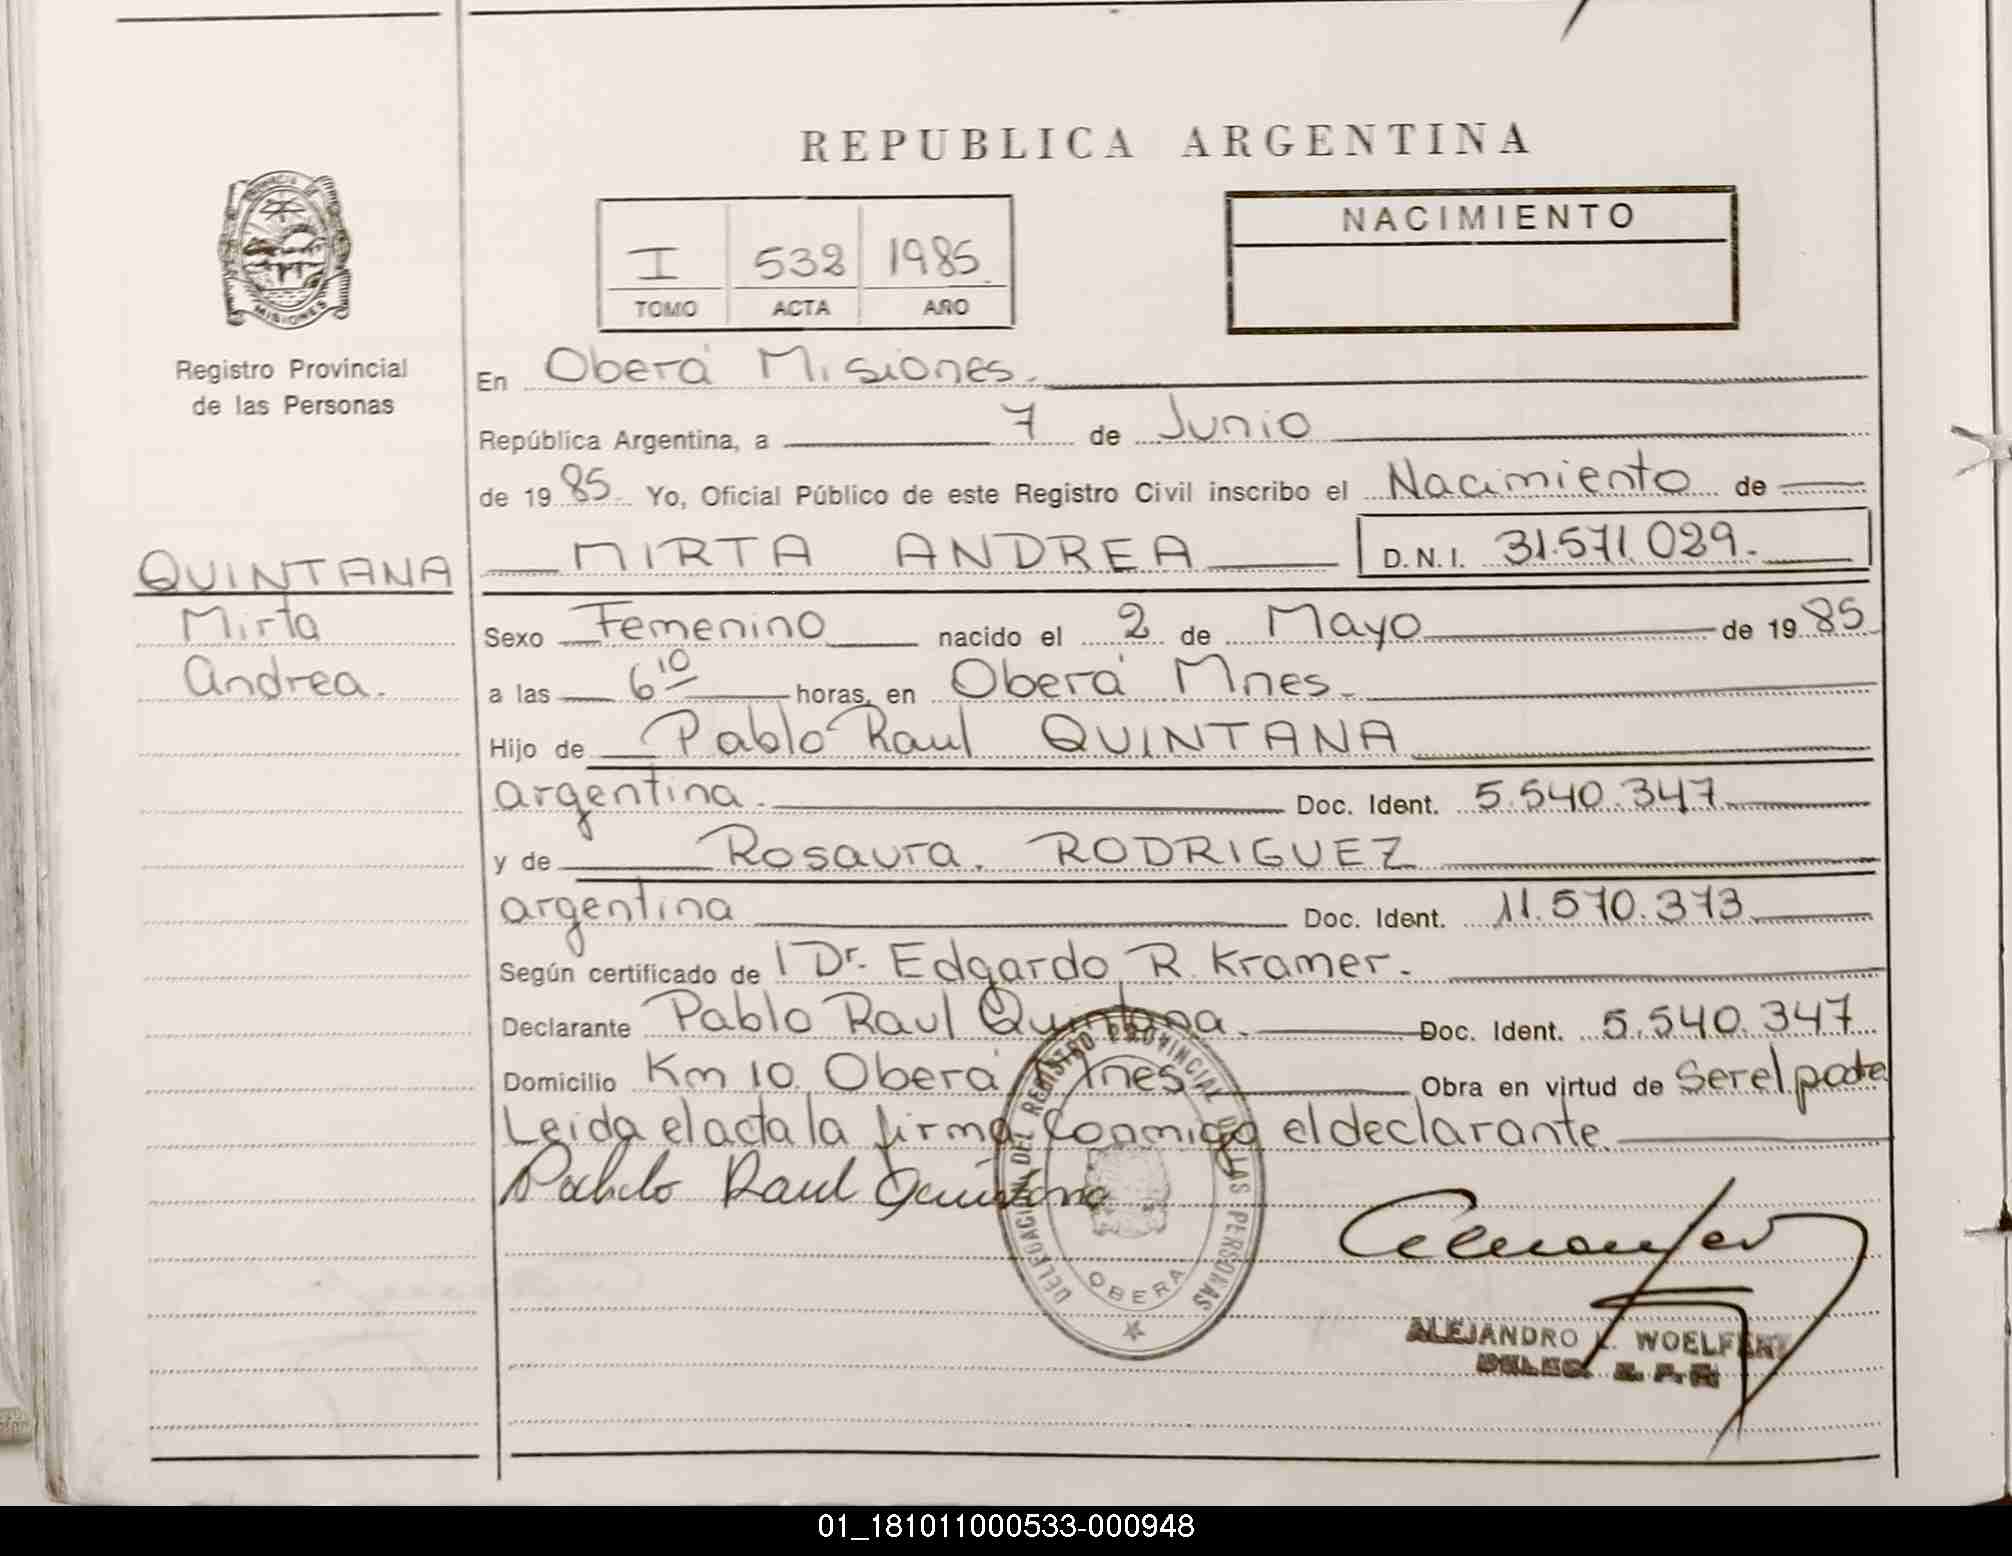 REPUBLICA ARGENTINA
PROVINCIA DE MISIONES
Registro Provincial
de las Personas
I 532 1985
TOMO ACTA AÑO
NACIMIENTO
En Oberá Misiones.
República Argentina, a 7 de Junio
de 1985 Yo, Oficial Público de este Registro Civil inscribo el Nacimiento de
QUINTANA
Mirta
Andrea.
MIRTA ANDREA D.N.I. 31.571.029.
Sexo Femenino nacido el 2 de Mayo de 1985
a las 6 10 horas, en Oberá Mnes.
Hijo de Pablo Raul QUINTANA
argentina. Doc. Ident. 5.540.347
y de Rosaura. RODRIGUEZ
argentina Doc. Ident. 11.570.373
Según certificado de l Dr. Edgardo R. Kramer.
Declarante Pablo Raul Quintana. Doc. Ident. 5.540.347
Domicilio Km 10. Oberá Mnes. Obra en virtud de Ser el padre
Leida el acta la firma conmigo el declarante.
Pablo Raul Quintana
DELEGACION DEL REGISTRO PROVINCIAL DE LAS PERSONAS
OBERA
ALEJANDRO
DELEG.
01_181011000533-000948